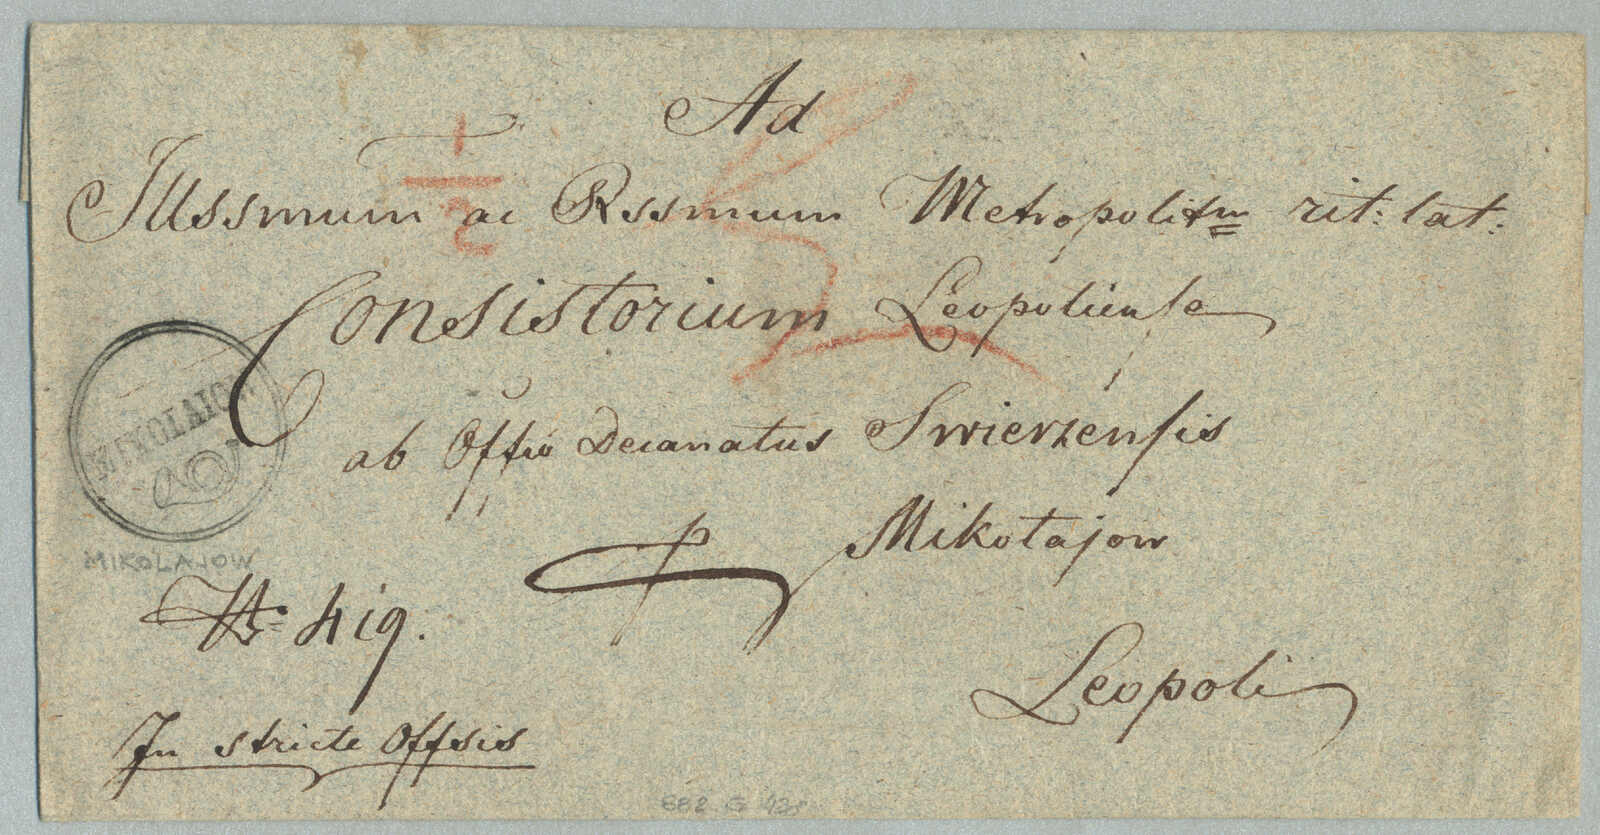 Ad
Illssmum ac Rssmum Metropolitm rit: lat:
Consistorium Leopoliense
ab Offio Decanatus Swierzensis
MIKOLAIOW
Mikołajow
MIKOLAJOW
No 419.
Leopoli
In stricte Offsis